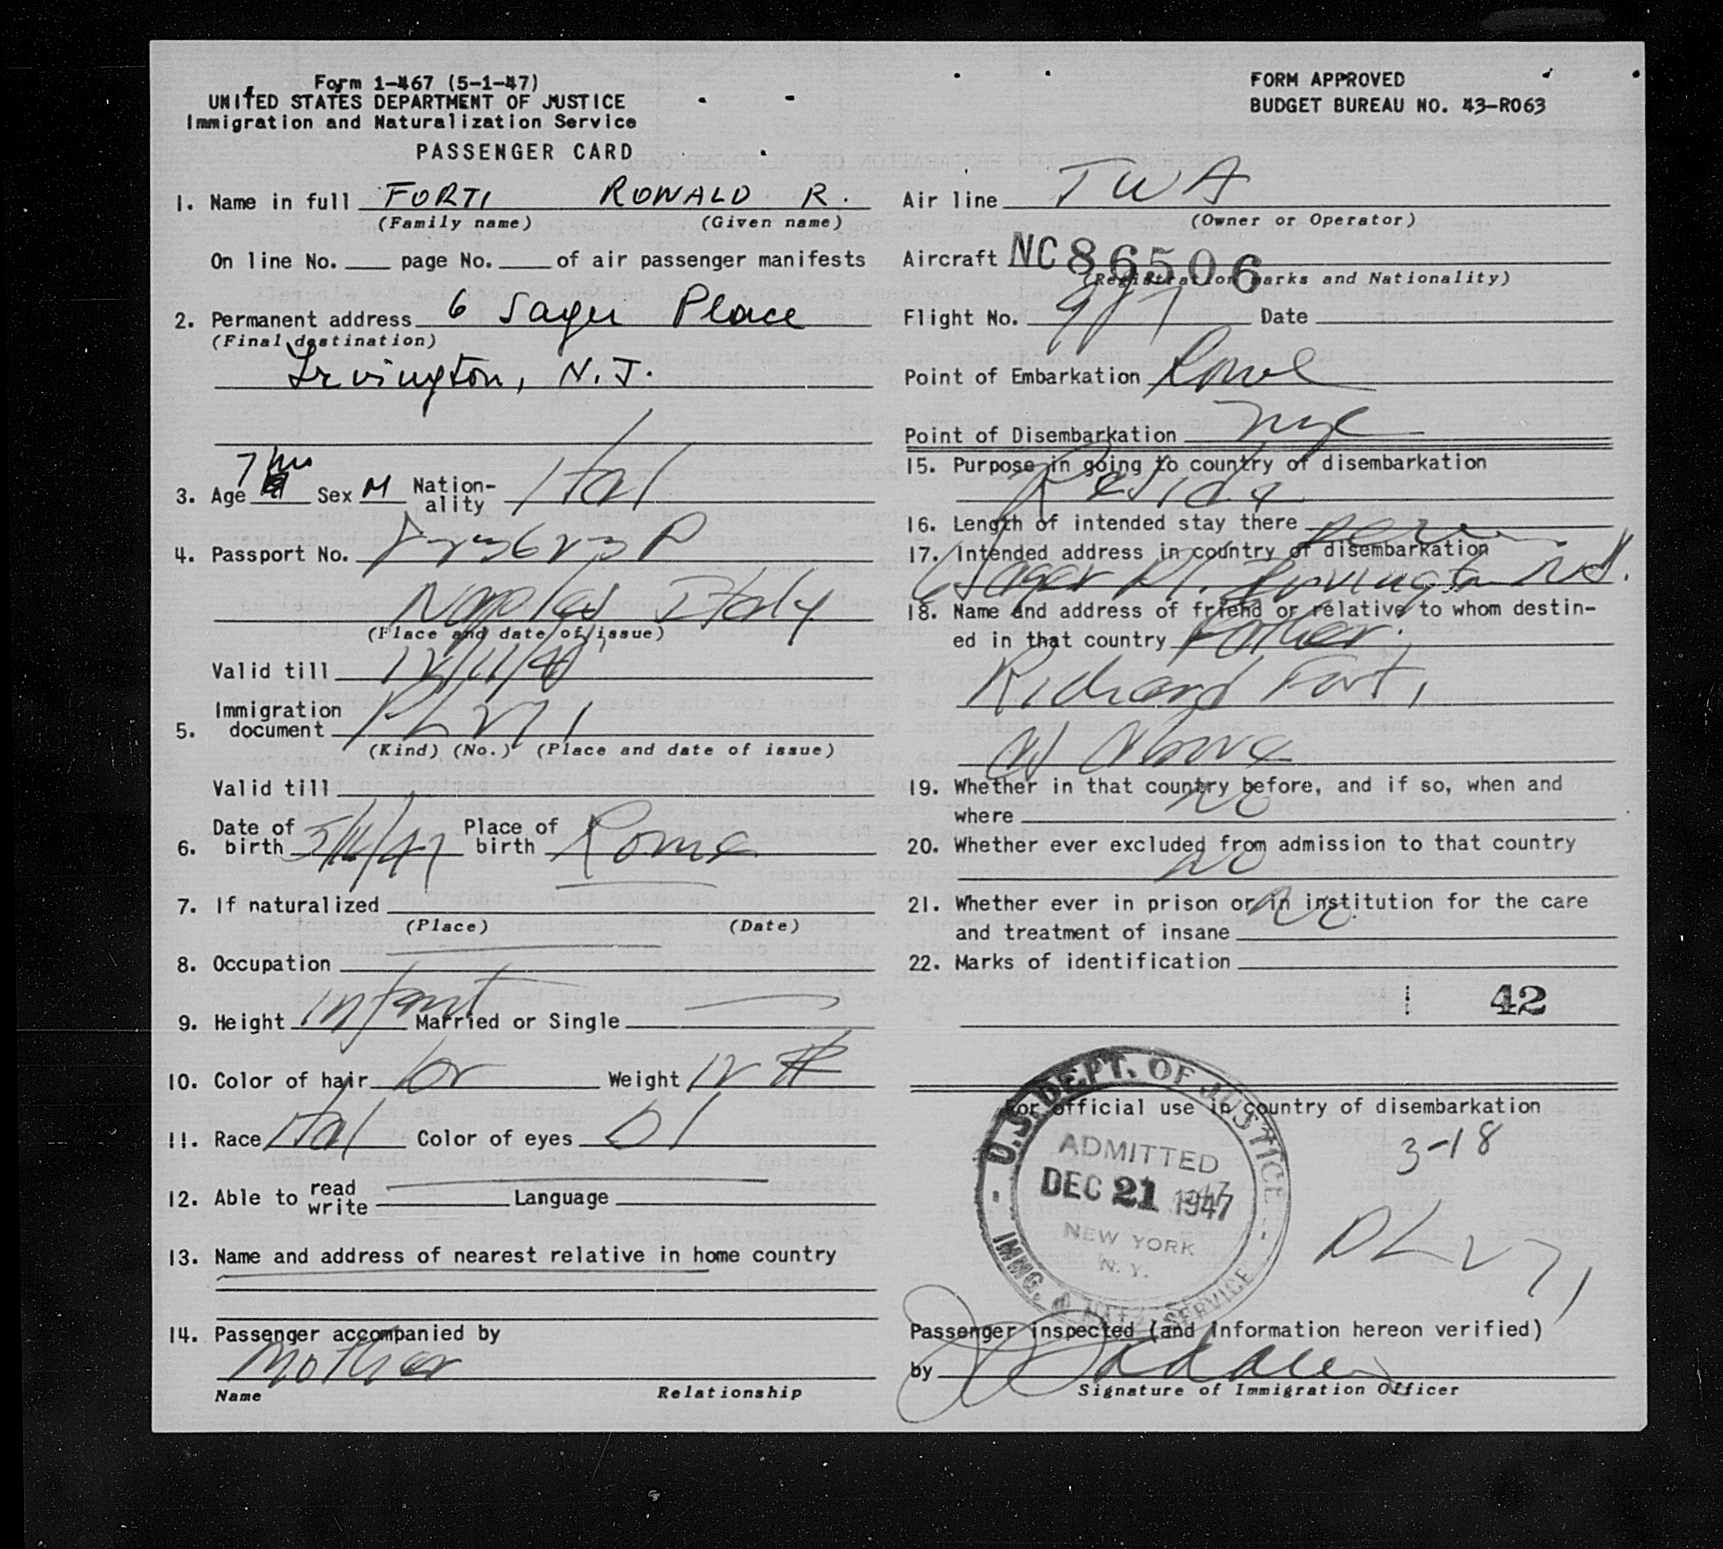 Form 1-467 (5-1-47)
UNITED STATES DEPARTMENT OF JUSTICE
Immigration and Naturalization Service
PASSENGER CARD
FORM APPROVED
BUDGET BUREAU NO. 43-R063
1. Name in full FORTI RONALD R.
(Family name) (Given name)
On line No. page No. of air passenger manifests
2. Permanent address 6 Sager Place
(Final destination)
Irvington, N.J.
3. Age 7 Sex M Nation-
ality Ital
4. Passport No.
Naples Italy
(Place and date of issue)
Valid till
5. Immigration
document
(Kind) (No.) (Place and date of issue)
Valid till
6. Date of
birth Place of
birth Rome
7. If naturalized
(Place) (Date)
8. Occupation
9. Height infant Married or Single
10. Color of hair br Weight 12 #
11. Race Ital Color of eyes bl
12. Able to read
write Language
13. Name and address of nearest relative in home country
14. Passenger accompanied by
Mother
Name Relationship
Air line TWA
(Owner or Operator)
Aircraft NC 86506
(Registration marks and Nationality)
Flight No. Date
Point of Embarkation Rome
Point of Disembarkation nyc
15. Purpose in going to country of disembarkation
Reside
16. Length of intended stay there
17. Intended address in country of disembarkation
6 Sager Pl. Irvington NJ.
18. Name and address of friend or relative to whom destin-
ed in that country Father.
Richard Forti
as above
19. Whether in that country before, and if so, when and
where no
20. Whether ever excluded from admission to that country
no
21. Whether ever in prison or in institution for the care
and treatment of insane no
22. Marks of identification
42
For official use in country of disembarkation
3-18
U.S. DEPT. OF JUSTICE
ADMITTED
DEC 21 1947
NEW YORK
N.Y.
IMMG. & NATZ. SERVICE
Passenger inspected (and information hereon verified)
by
Signature of Immigration Officer